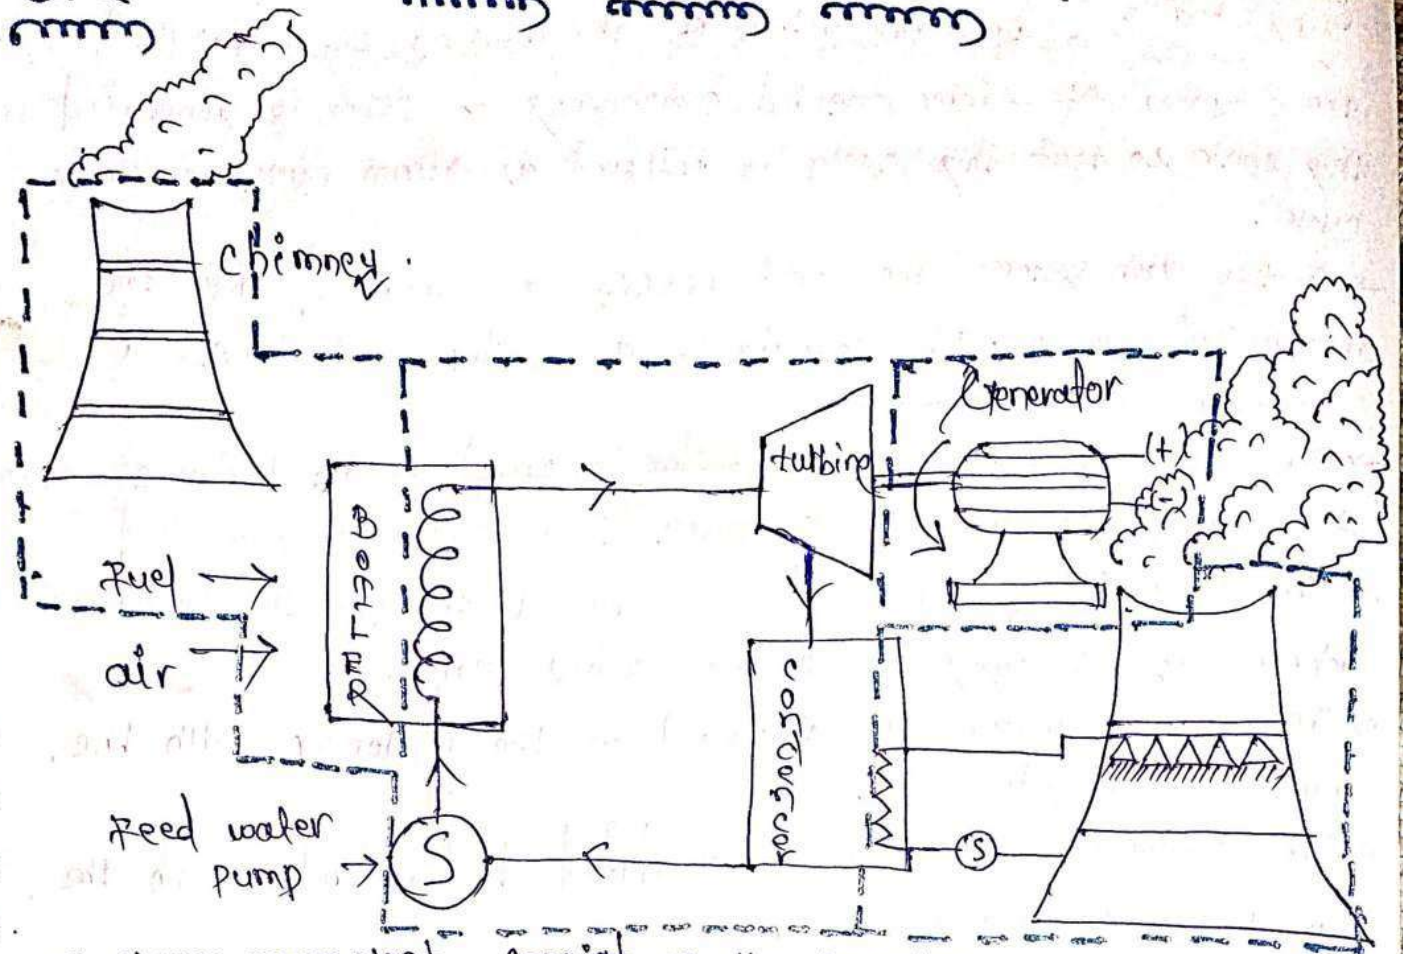 Chimney.
Generator
turbine
(+)
(-)
BOILER
Fuel
air
condensor
Feed water
pump
S
S